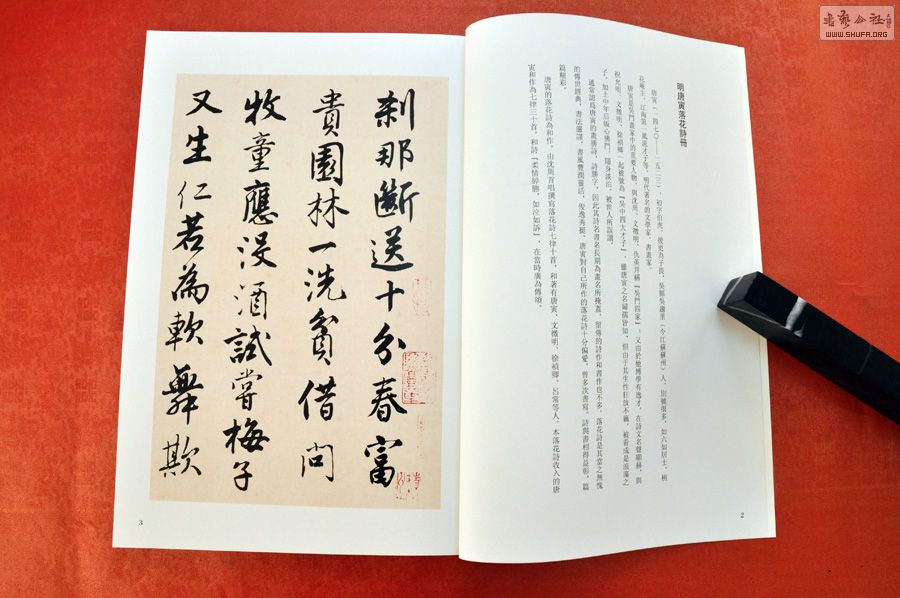 明唐寅落花詩冊
唐寅（一四七〇——一五二三），初字伯虎，後更為子畏，吳縣吳趨里（今江蘇蘇州）人，別號很多，如六如居士、桃
花庵主、江南第一風流才子等，明代著名的文學家、書畫家。
唐寅是吳門畫家中的重要人物，與沈周、文徵明、仇英并稱『吳門四家』；又由於他博學有逸才，在詩文名聲顯赫，與
祝允明、文徵明、徐禎卿一起被號為『吳中四大才子』。雖唐寅之名婦孺皆知，但由于其生性狂放不羈，被看成是浪蕩之
子，加上中年后皈心佛門，隱身淡泊，被世人所誤讀。
通常認爲唐寅的畫勝詩，詩勝字，因此其詩名書名長期為畫名所掩蓋，留傳的詩作和書作也不多。落花詩是其當之無愧
的傳世經典，書法嚴謹，書風豐潤靈活，俊逸秀挺。唐寅對自己所作的落花詩十分偏愛，曾多次書寫，詩與書相得益彰，篇
篇精彩。
唐寅的落花詩為和作，由沈周首唱撰寫落花詩七律十首，和者有唐寅、文徵明、徐禎卿、呂常等人，本落花詩收入的唐
寅和作為七律三十首，和詩『柔情綽態，如泣如訴』，在當時廣為傳頌。
2
刹那斷送十分春富
貴園林一洗貧借問
牧童應沒酒試嘗梅子
又生仁若為軟舞欺
3
WWW.SHUFA.ORG